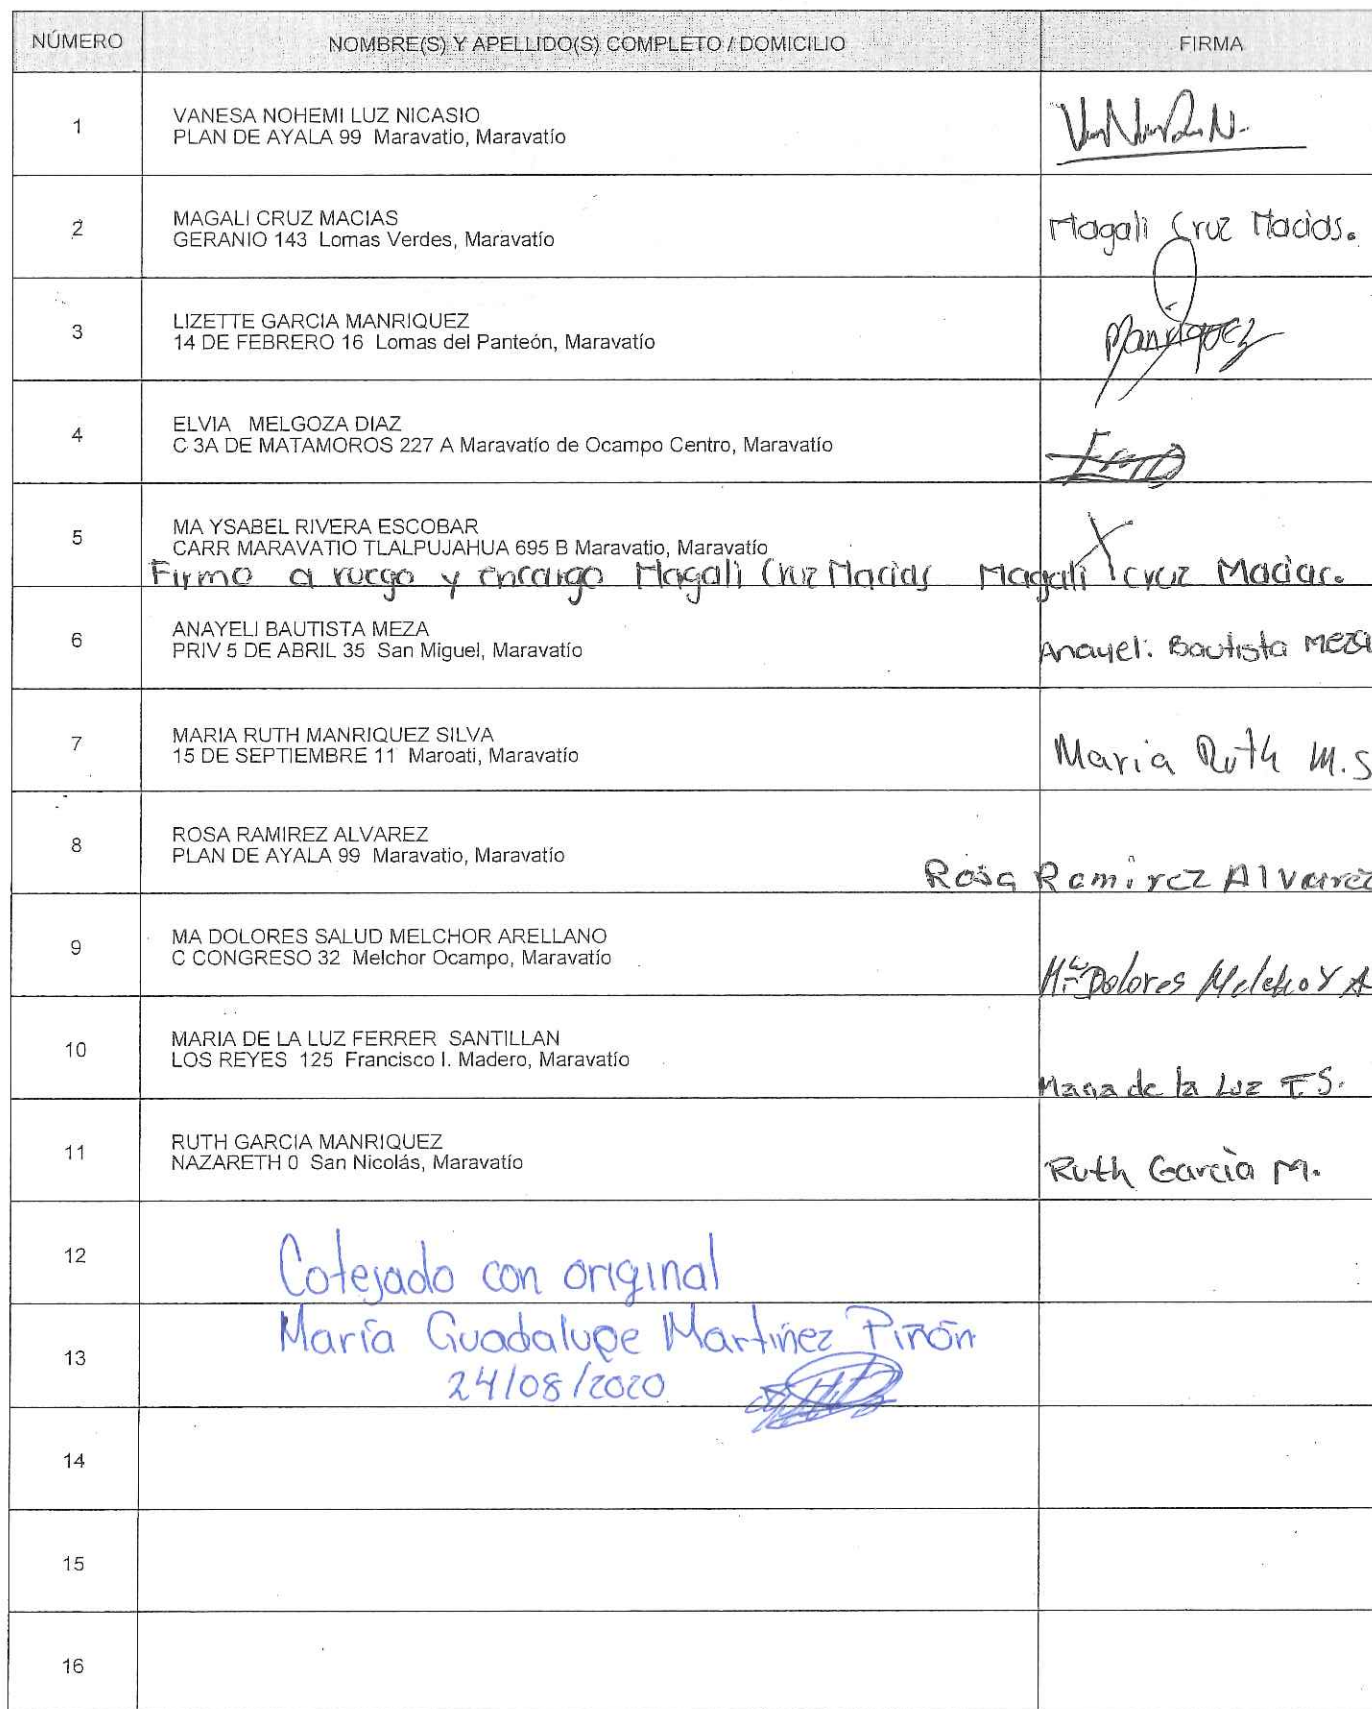 NÚMERO NOMBRE(S) Y APELLIDO(S) COMPLETO / DOMICILIO FIRMA
1 VANESA NOHEMI LUZ NICASIO
PLAN DE AYALA 99 Maravatio, Maravatío
2 MAGALI CRUZ MACIAS
GERANIO 143 Lomas Verdes, Maravatío
Magali Cruz Macias.
3 LIZETTE GARCIA MANRIQUEZ
14 DE FEBRERO 16 Lomas del Panteón, Maravatío
Manriquez
4 ELVIA MELGOZA DIAZ
C 3A DE MATAMOROS 227 A Maravatío de Ocampo Centro, Maravatío
5 MA YSABEL RIVERA ESCOBAR
CARR MARAVATIO TLALPUJAHUA 695 B Maravatio, Maravatío
X
Firmo a ruego y encargo Magali Cruz Macias Magali Cruz Macias.
6 ANAYELI BAUTISTA MEZA
PRIV 5 DE ABRIL 35 San Miguel, Maravatío
Anayeli Bautista Meza
7 MARIA RUTH MANRIQUEZ SILVA
15 DE SEPTIEMBRE 11 Maroati, Maravatío
Maria Ruth M.S
8 ROSA RAMIREZ ALVAREZ
PLAN DE AYALA 99 Maravatio, Maravatío
Rosa Ramirez Alvarez
9 MA DOLORES SALUD MELCHOR ARELLANO
C CONGRESO 32 Melchor Ocampo, Maravatío
Ma Dolores Melchor A
10 MARIA DE LA LUZ FERRER SANTILLAN
LOS REYES 125 Francisco I. Madero, Maravatío
Maria de la Luz F.S.
11 RUTH GARCIA MANRIQUEZ
NAZARETH 0 San Nicolás, Maravatío
Ruth García M.
12 Cotejado con original
13 María Guadalupe Martínez Piñón
24/08/2020
14
15
16